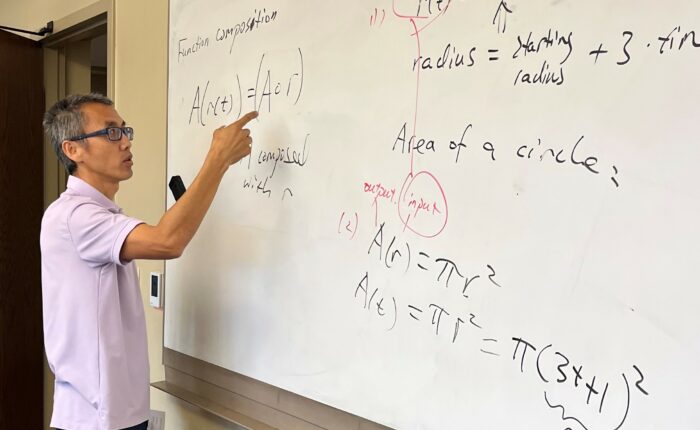 Function composition
A(r(t)) = (A∘r)
composed
with r
(1) r(t)
radius = starting radius + 3 ·
Area of a circle:
output input
(2) A(r) = πr²
A(t) = πr² = π(3t+1)²